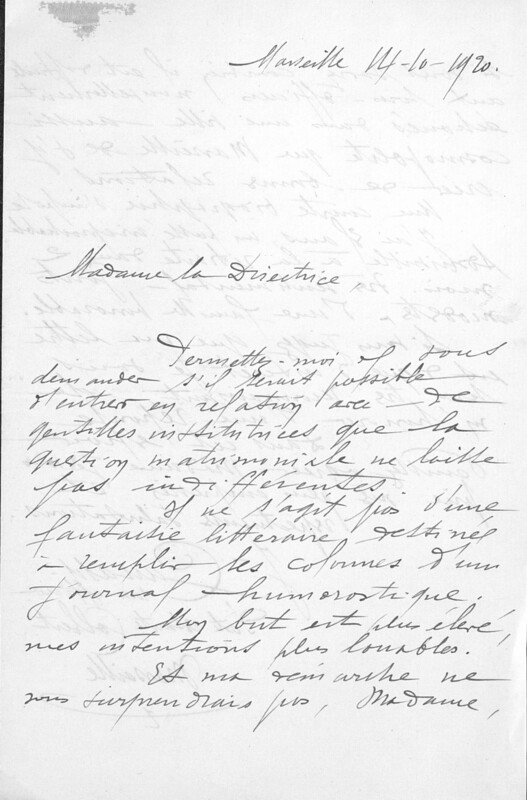 Marseille 14-10-1920.
Madame la Directrice,
Permettez-moi de vous
demander s'il serait possible
d'entrer en relation avec de
gentilles institutrices que la
question matrimoniale ne laisse
pas indifférentes.
Il ne s'agit pas d'une
fantaisie littéraire destinée
à remplir les colonnes d'un
journal humoristique.
Mon but est plus élevé,
mes intentions plus louables.
Et ma démarche ne
vous surprendrais pas, Madame,